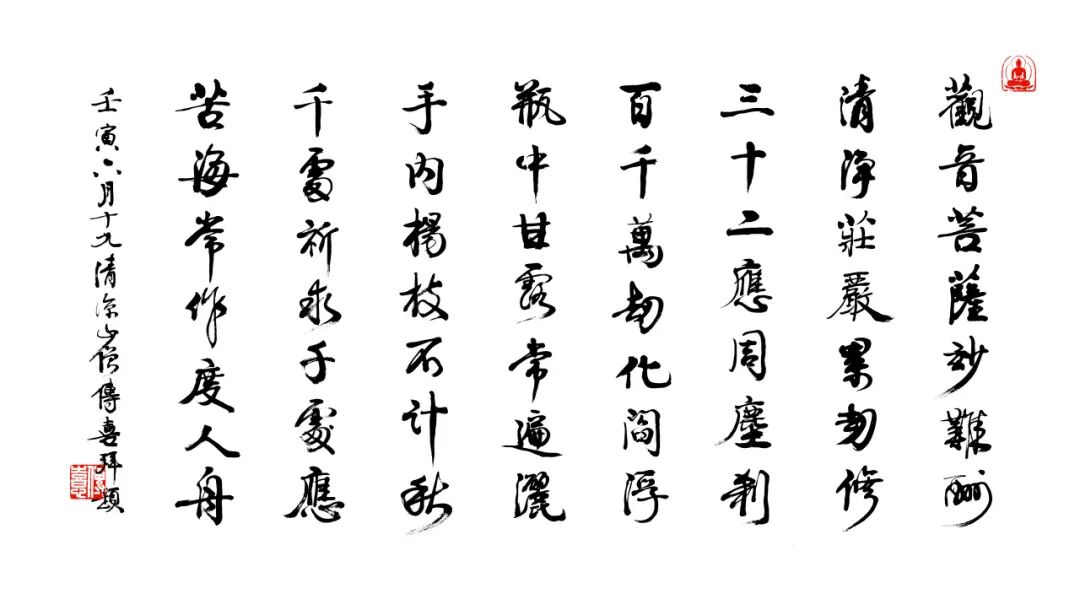 觀音菩薩妙難酬
清淨莊嚴累劫修
三十二應周塵刹
百千萬劫化閻浮
瓶中甘露常遍灑
手內楊枝不計秋
千處祈求千處應
苦海常作度人舟
壬寅六月十九清涼山僧傳喜拜題
傳喜